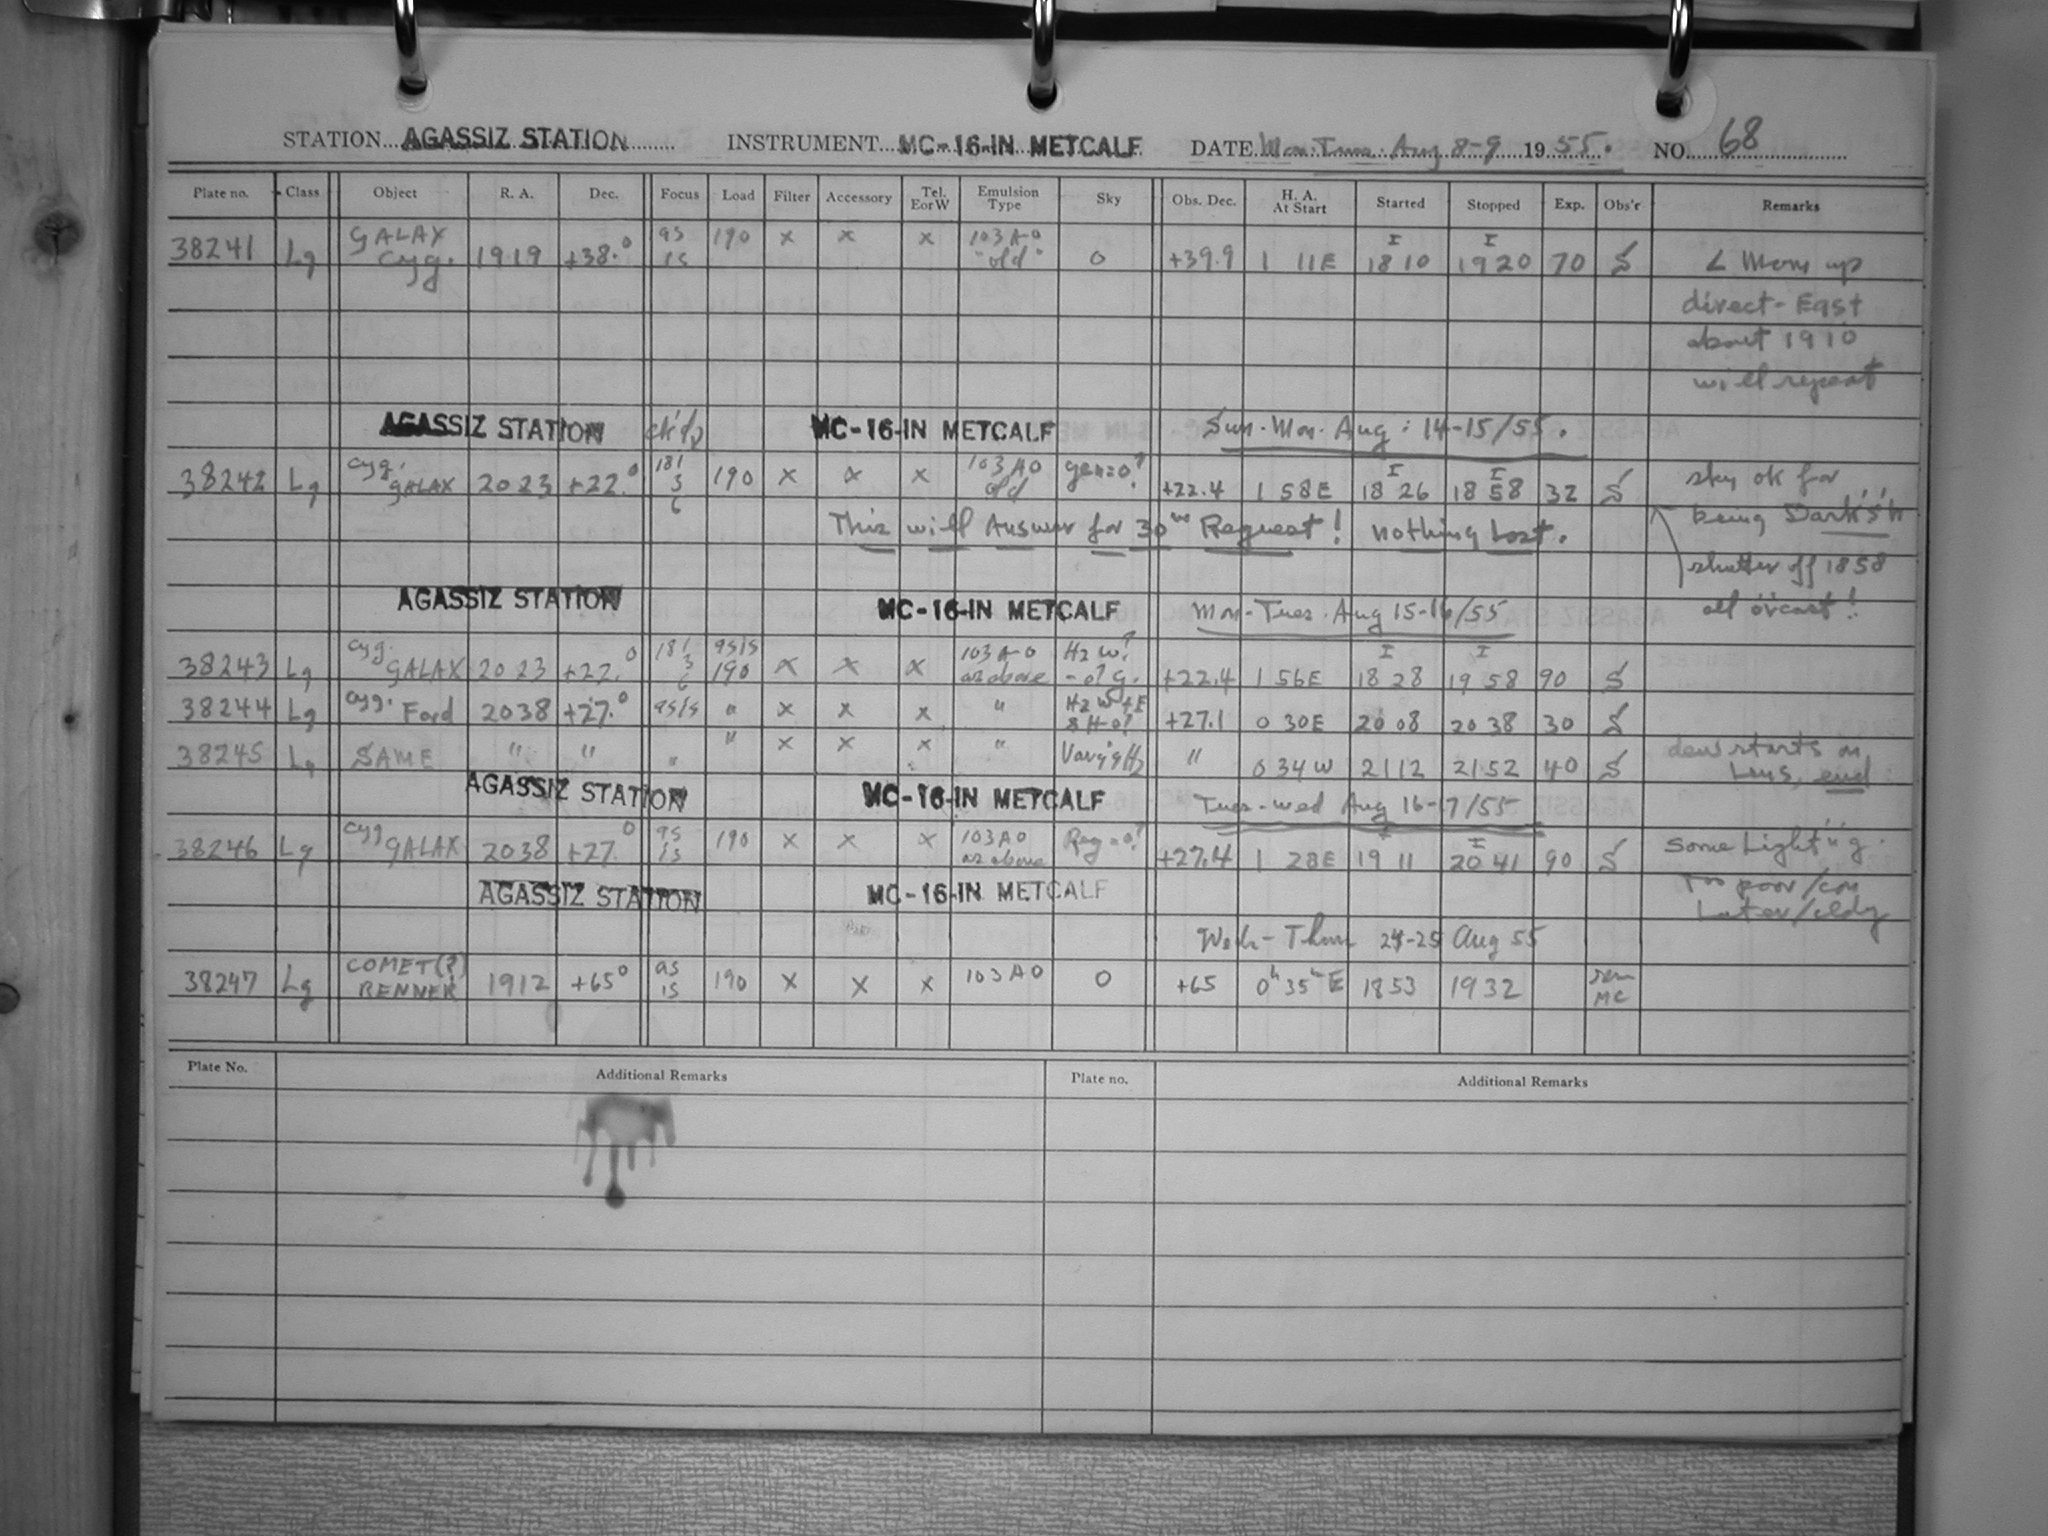 STATION AGASSIZ STATION INSTRUMENT MC-16-IN METCALF DATE Mon-Tues. Aug 8-9 1955. NO. 68
Plate no. Class Object R. A. Dec. Focus Load Filter Accessory Tel. E or W Emulsion Type Sky Obs. Dec. H. A. At Start Started Stopped Exp. Obs'r Remarks
38241 Lg GALAX Cyg. 1919 +38.° 95 15 190 x x x 103 A-O "old" 0 +39.9 1 11E I 18 10 I 19 20 70 S Moon up
direct-East
about 1910
will repeat
AGASSIZ STATION MC-16-IN METCALF Sun-Mon-Aug: 14-15/55.
38242 Lg Cyg. GALAX 2023 +22.° 181 3 6 190 x x x 103 AO old gen=0? +22.4 1 58E I 18 26 I 18 58 32 S sky ok for
being Dark's'h
This will Answer for 30m Request! nothing Lost.
shutter off 1858
all o'cast!!
AGASSIZ STATION MC-16-IN METCALF Mon-Tues. Aug 15-16/55
38243 Lg Cyg. GALAX 2023 +22.° 181 3 6 95/5 190 x x x 103 A-O as above Hz W? -o? g. +22.4 1 56E I 18 28 I 19 58 90 S
38244 Lg Cyg. Ford 2038 +27.° 95/5 " x x x " Hz W+E & H-o? +27.1 0 30E 20 08 20 38 30 S
38245 Lg SAME " " " " x x x " " 0 34W 2112 2152 40 S dew starts on
Lens, end
AGASSIZ STATION MC-16-IN METCALF Tues-Wed Aug 16-17/55
38246 Lg Cyg GALAX 2038 +27.° 95 15 190 x x x 103 AO as above Reg=0? +27.4 1 28E I 19 11 I 20 41 90 S Some Light"g.
Too poor/con
Later/cldy
AGASSIZ STATION MC-16-IN METCALF
Wed-Thur 24-25 Aug 55
38247 Lg COMET(?) RENNER 1912 +65° 95 15 190 x x x 103 AO 0 +65 0h 35m E 1853 1932 MC
Plate No. Additional Remarks Plate no. Additional Remarks